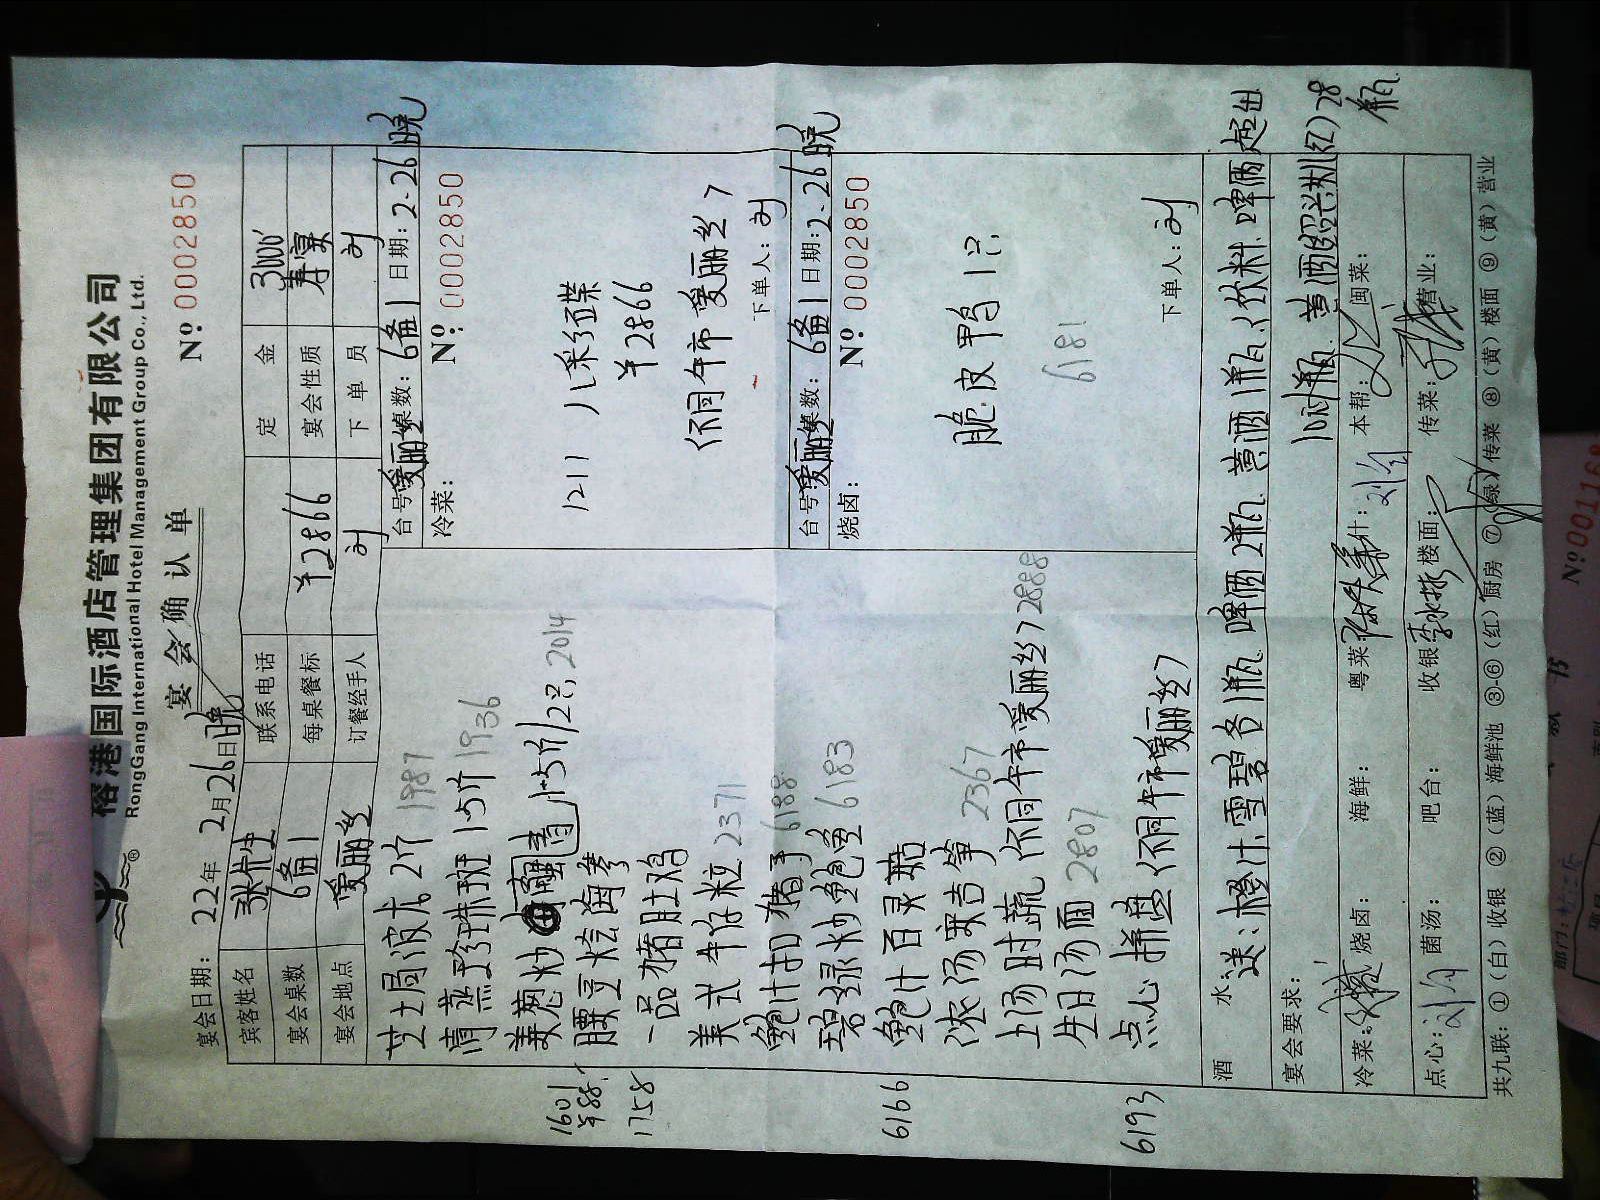 榕港国际酒店管理集团有限公司
RongGang International Hotel Management Group Co., Ltd.
宴会确认单
宴会日期: 22年 2月26日晚 Nº 0002850
宾客姓名 张先生 联系电话 定金 3000
宴会桌数 6备1 每桌餐标 ¥2866 宴会性质 寿宴
宴会地点 爱丽丝 订餐经手人 刘 下单员 刘
芝士焗波龙2斤 1987
清蒸珍珠斑1.5斤 1936
姜葱炒 1*5斤/2只, 2014
1601 腰豆烩海参
¥88.
1758 一品猪肚鸡
美式牛仔粒 2371
鲍汁扣猪手 6188
碧绿炒鲍鱼 6183
6166 鲍汁百灵菇
浓汤栗吉笋 2367
上汤时蔬 (不同午市爱丽丝) 2888
生日汤面 2807
6193 点心拼盘 (不同午市爱丽丝)
台号: 爱丽丝 桌数: 6备1 日期: 2-26晚
冷菜: Nº: 0002850
1211 八彩碟
¥2866
(不同午市爱丽丝)
下单人: 刘
台号: 爱丽丝 桌数: 6备1 日期: 2-26晚
烧卤: Nº 0002850
脆皮鸭1只
6181
下单人: 刘
酒水: 送: 橙汁, 雪碧各1瓶 啤酒2瓶 黄酒1瓶 (饮料 啤酒超出
宴会要求: 黄酒绍兴 28
瓶
冷菜: 烧卤: 海鲜: 粤菜: 什: 本帮: 闽菜:
点心: 菌汤: 吧台: 收银: 楼面: 传菜: 营业:
共九联: ①(白)收银 ②(蓝)海鲜池 ③-⑥(红)厨房 ⑦(绿)传菜 ⑧(黄)楼面 ⑨(黄)营业
Nº 001168
部门: